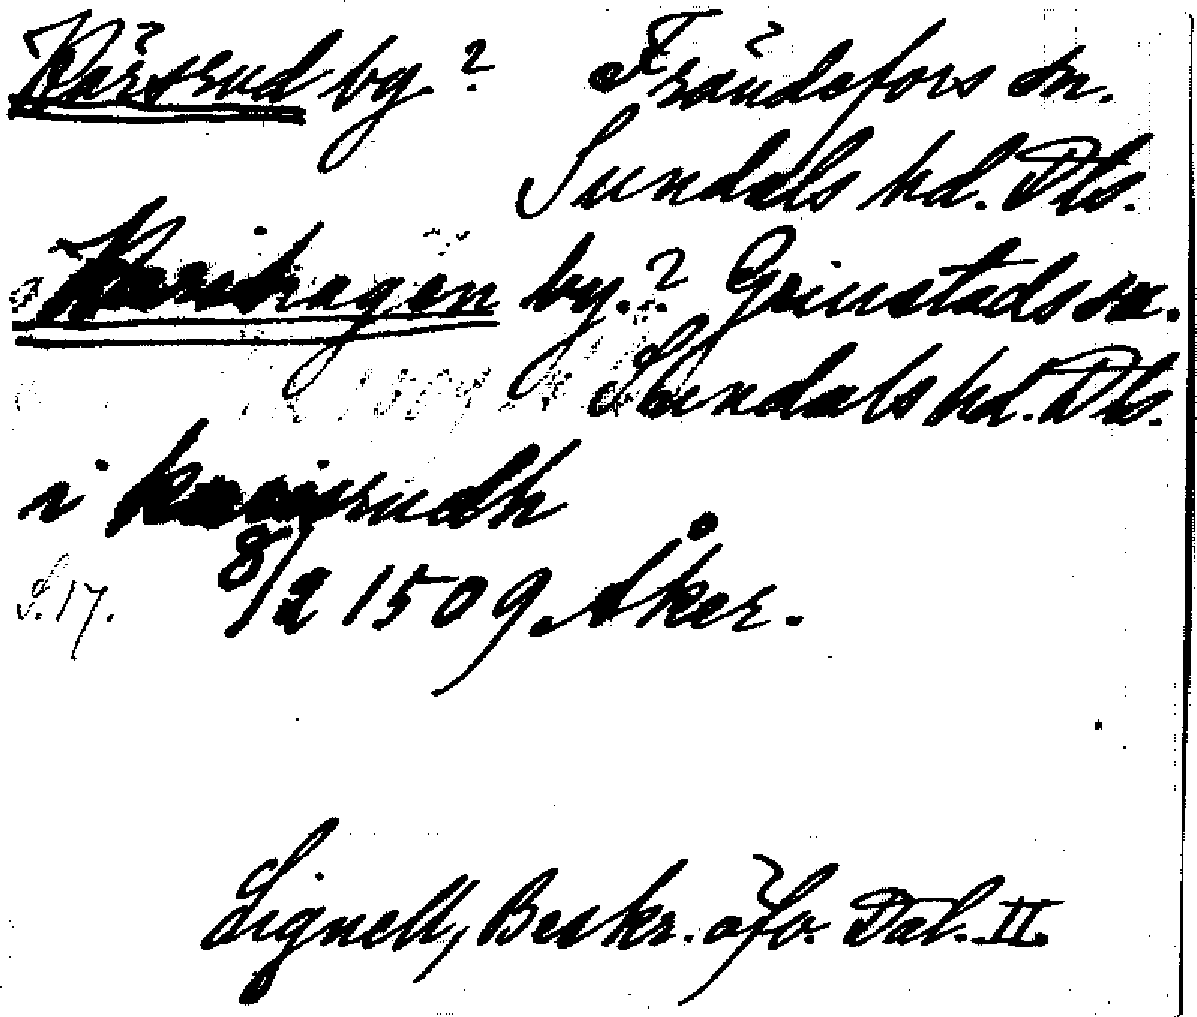 Kärsrud by? Frändefors sn.
Sundals hd. Dls.
Karshagen by.? Grinstads sn.
Sundals hd. Dls.
i karisrudh
S. 17. 8/2 1509 Åker.
Lignell, Beskr. öfv. Dal. II.